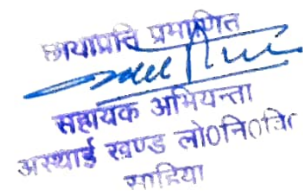 छायाप्रति प्रमाणित
सहायक अभियन्ता
अस्थाई खण्ड लो०नि०वि०
साहिया